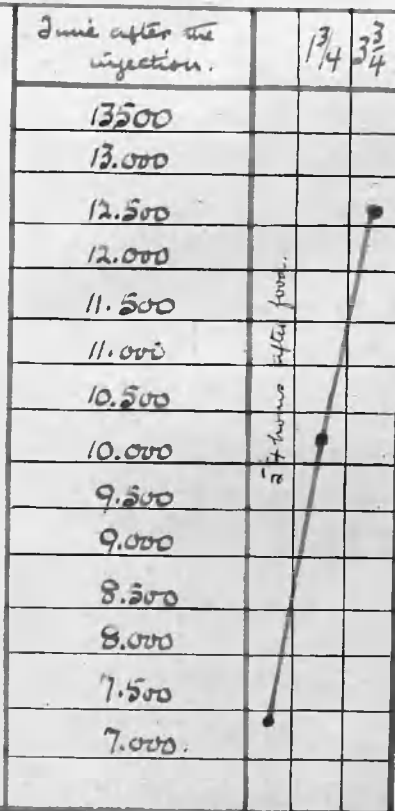 Time after the
injection.
1 3/4
3 3/4
13500
13.000
12.500
12.000
11.500
11.000
10.500
10.000
9.500
9.000
8.500
8.000
7.500
7.000.
hours after food.